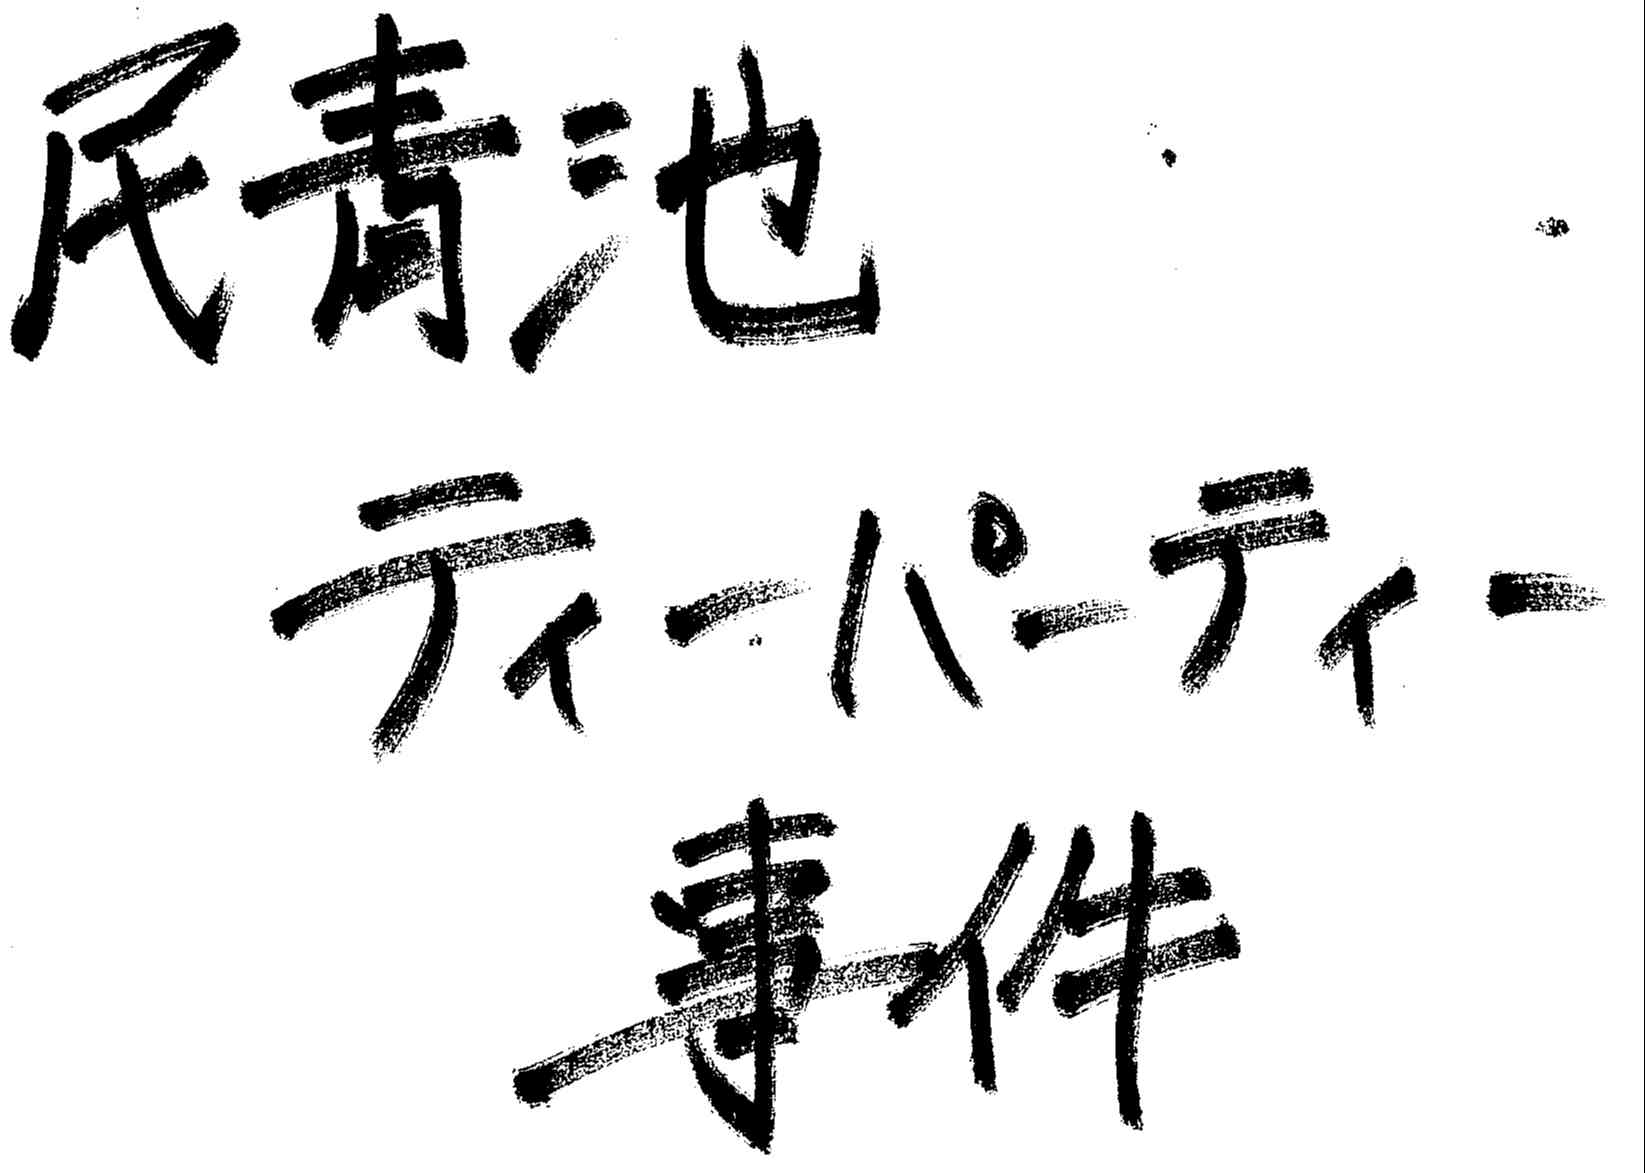 民青池
ティーパーティー
事件